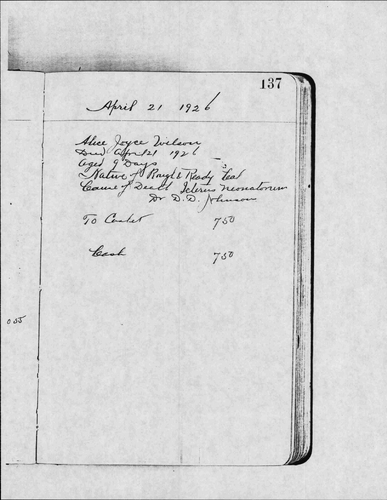 137
April 21 1926
Alice Joyce Wilson
Died April 21 1926
Aged 9 Days
Native of Rough & Ready Cal
Cause of Death Icterus Neonatorum
Dr D. D. Johnson
To Casket 7 50
Cash 7 50
0 55